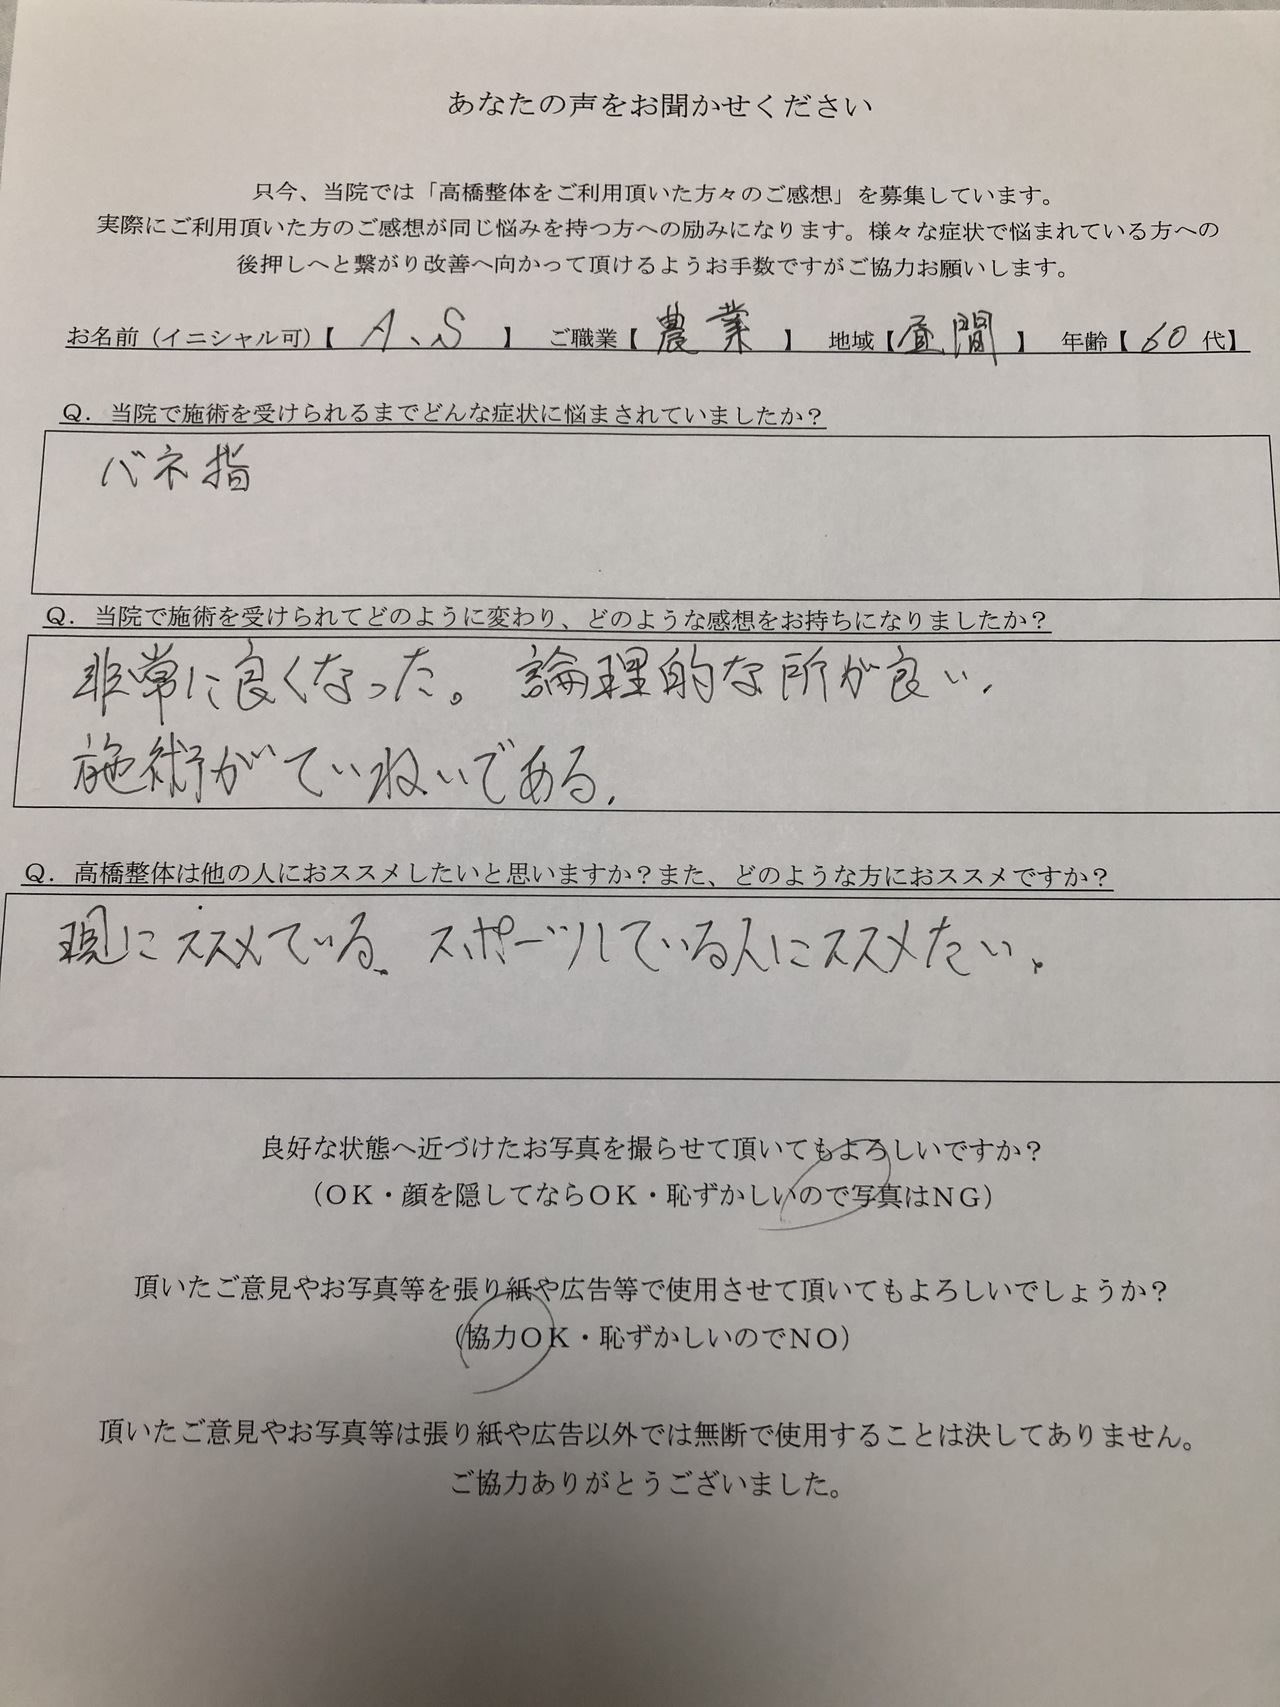 あなたの声をお聞かせください
只今、当院では「高橋整体をご利用頂いた方々のご感想」を募集しています。
実際にご利用頂いた方のご感想が同じ悩みを持つ方への励みになります。様々な症状で悩まれている方への
後押しへと繋がり改善へ向かって頂けるようお手数ですがご協力お願いします。
お名前（イニシャル可）【 A、S 】 ご職業【 農業 】 地域【昼間 】 年齢【 60 代】
Q．当院で施術を受けられるまでどんな症状に悩まされていましたか？
バネ指
Q．当院で施術を受けられてどのように変わり、どのような感想をお持ちになりましたか？
非常に良くなった。 論理的な所が良い、
施術がていねいである。
Q．高橋整体は他の人におススメしたいと思いますか？また、どのような方におススメですか？
現にススメている。スポーツしている人にススメたい。
良好な状態へ近づけたお写真を撮らせて頂いてもよろしいですか？
（OK・顔を隠してならOK・恥ずかしいので写真はNG）
頂いたご意見やお写真等を張り紙や広告等で使用させて頂いてもよろしいでしょうか？
（協力OK・恥ずかしいのでNO）
頂いたご意見やお写真等は張り紙や広告以外では無断で使用することは決してありません。
ご協力ありがとうございました。